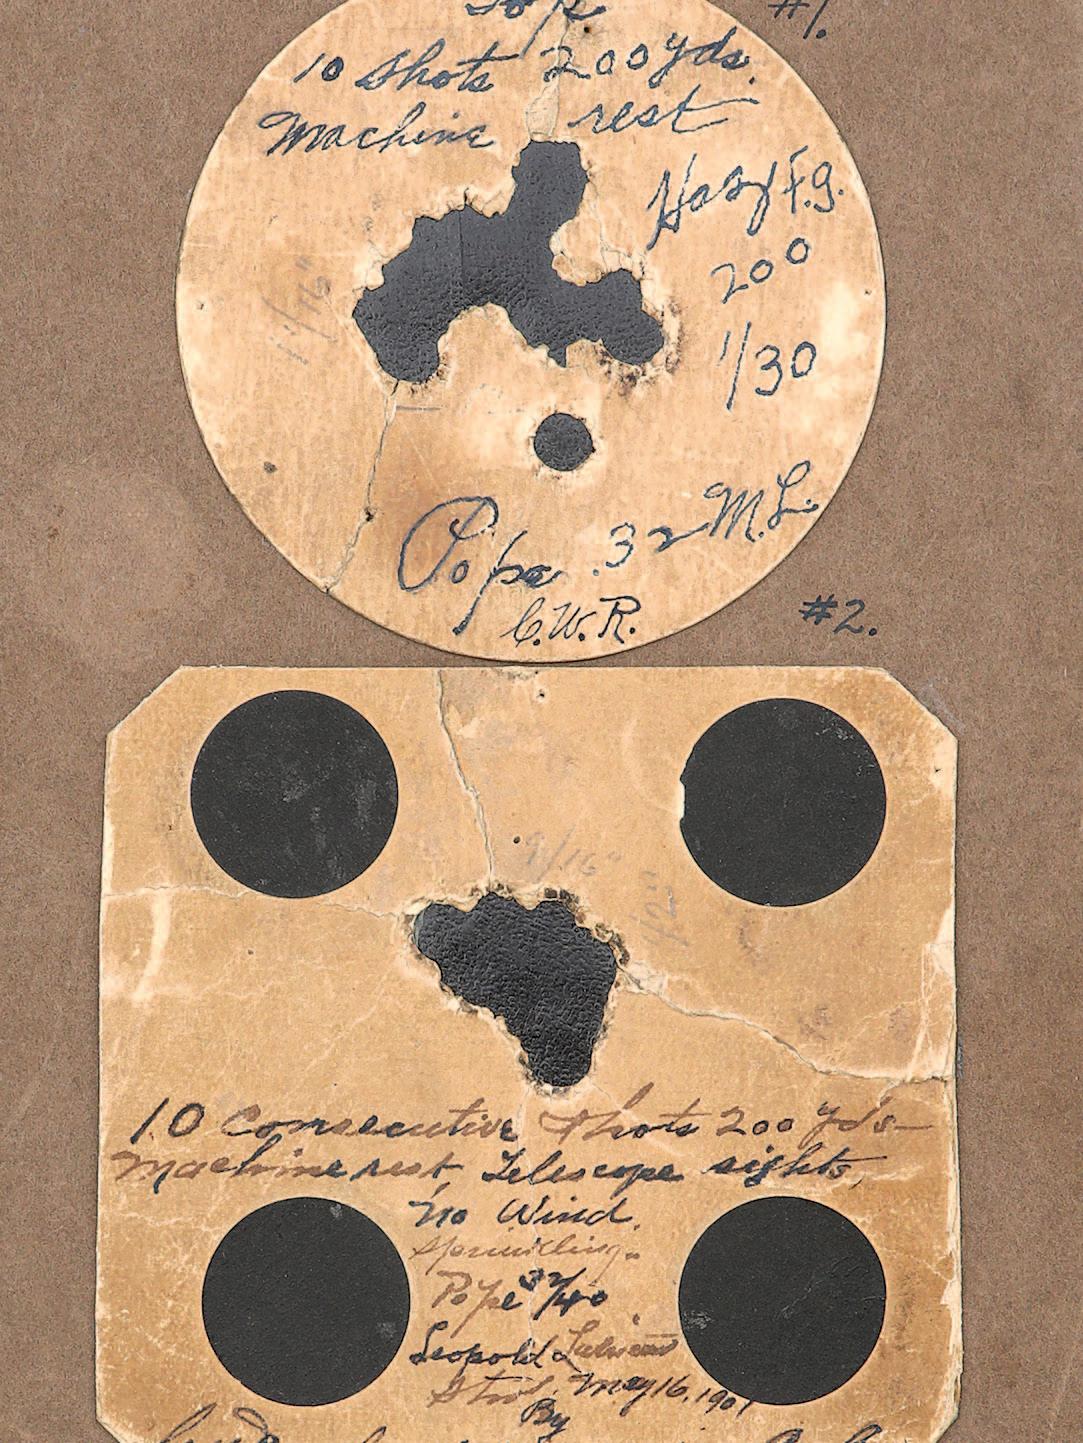 Top.
#1.
10 Shots 200 yds.
Machine rest
Haz F.g.
200
1/30
1 1/16"
Pope .32 M.L.
C.W.R.
#2.
9/16"
1/2"
10 Consecutive Shots 200 yds-
Machine rest, Telescope sights,
No Wind.
Sprinkling.
Pope 32/40
Leopold
May 16, 1901
By